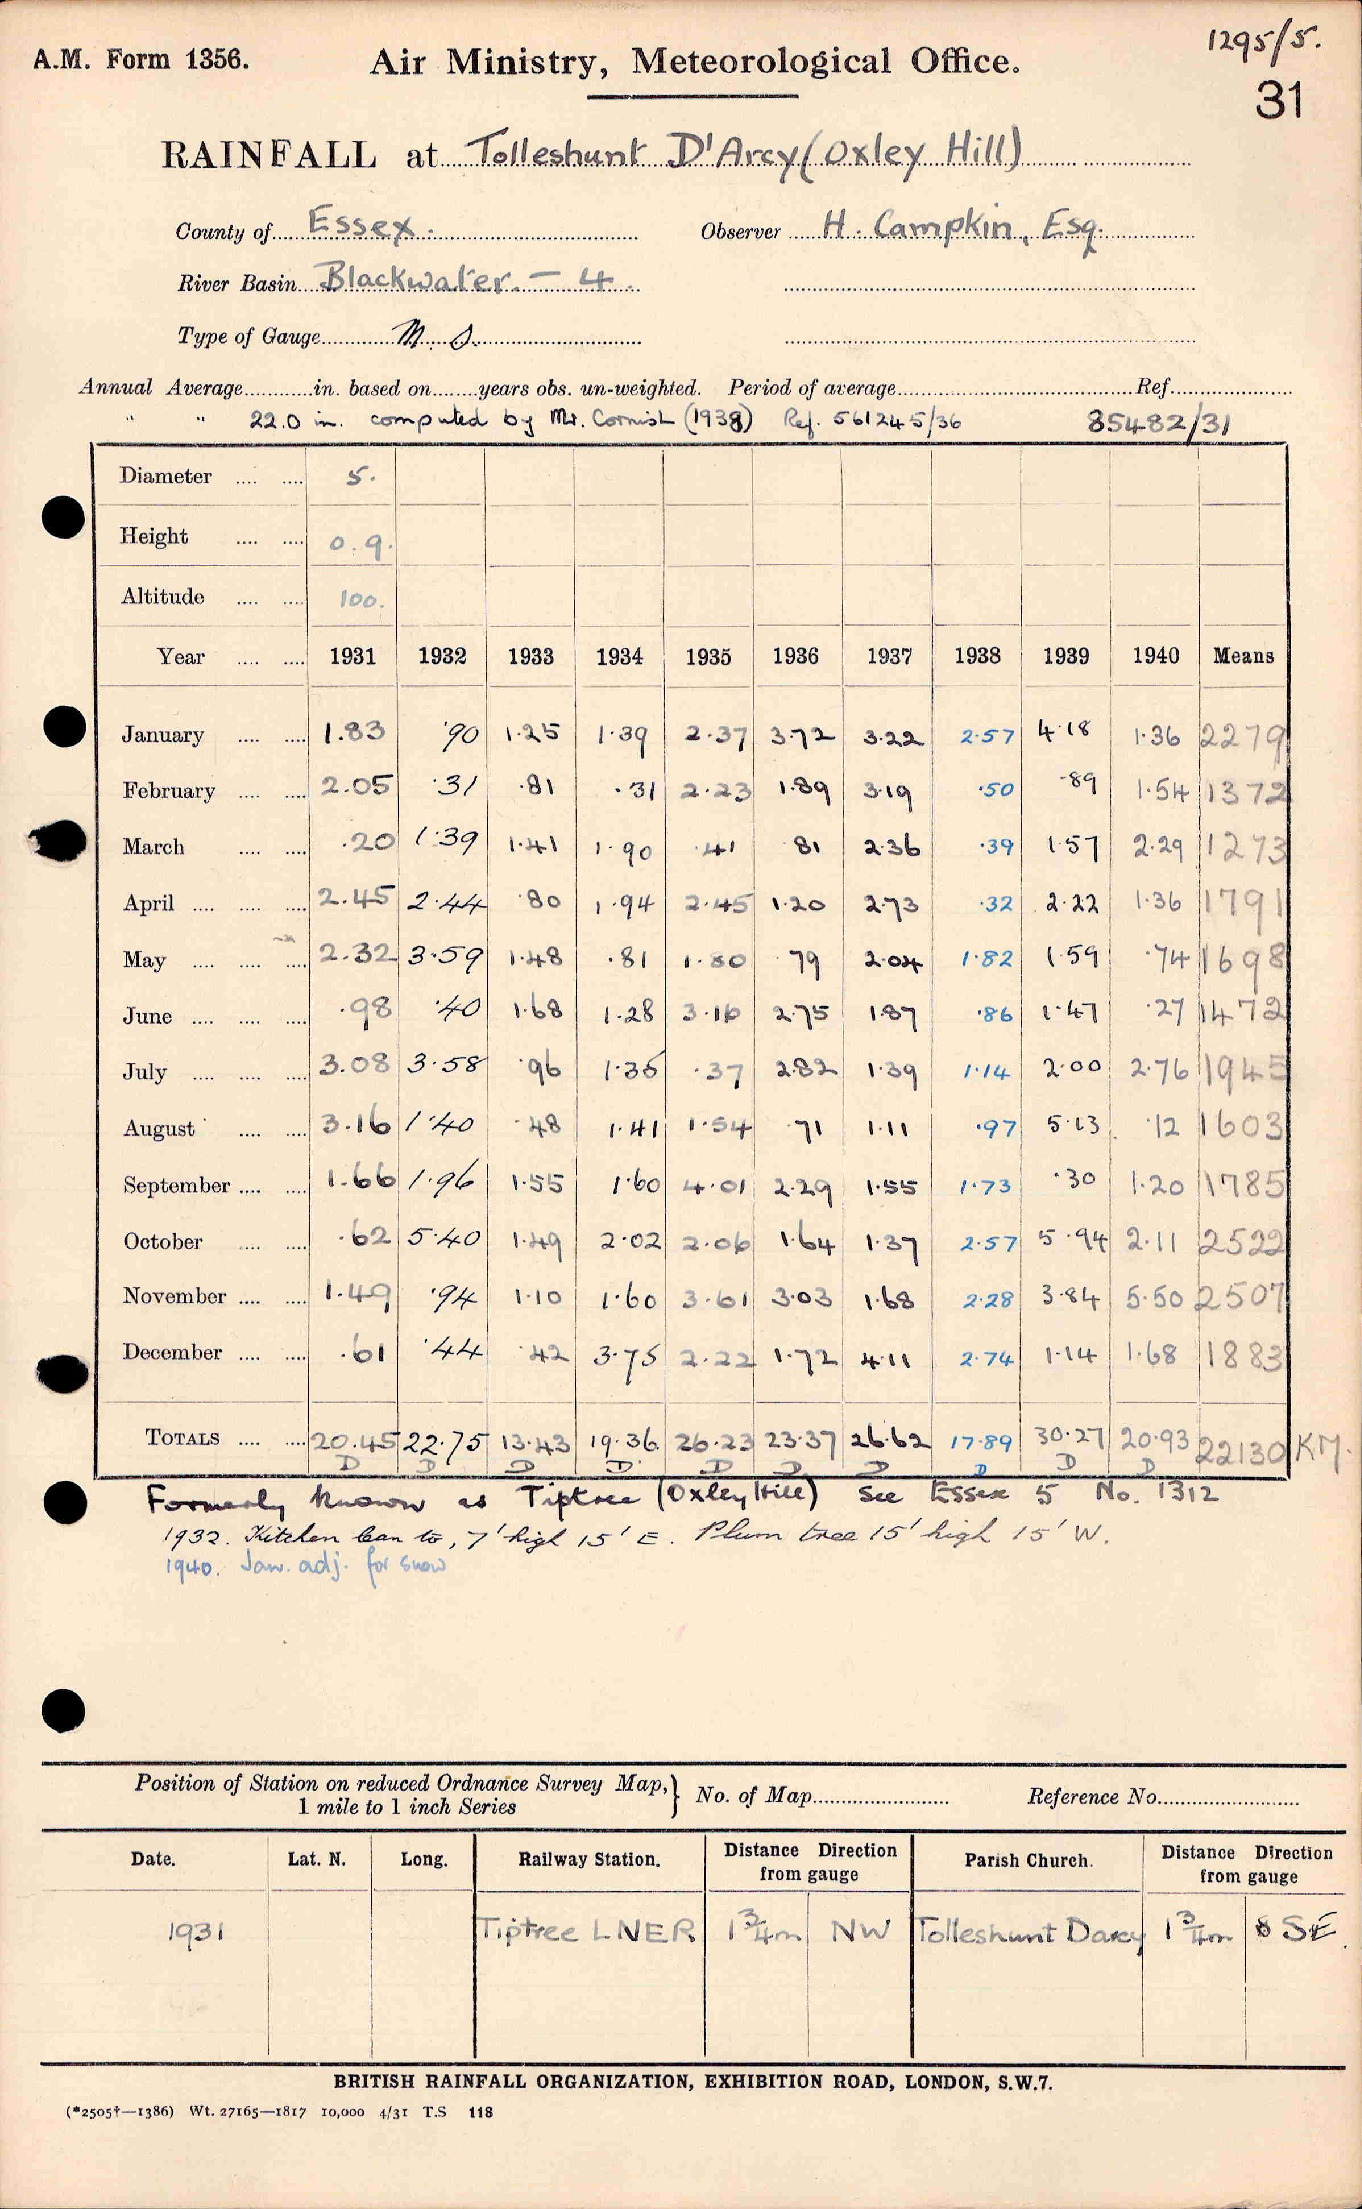 A.M. Form 1356.
Air Ministry, Meteorological Office.
1295/5.
31
RAINFALL at Tolleshunt D'Arcy (Oxley Hill)
County of Essex. Observer H. Campkin, Esq.
River Basin Blackwater. — 4.
Type of Gauge M. S.
Annual Average in. based on years obs. un-weighted. Period of average Ref.
" " 22.0 in. computed by Mr. Cornish (1938) Ref. 561245/36 85482/31
Diameter 5.
Height 0.9.
Altitude 100.
Year 1931 1932 1933 1934 1935 1936 1937 1938 1939 1940 Means
January 1.83 .90 1.25 1.39 2.37 3.72 3.22 2.57 4.18 1.36 2279
February 2.05 .31 .81 .31 2.23 1.89 3.19 .50 .89 1.54 1372
March .20 1.39 1.41 1.90 .41 81 2.36 .39 1.57 2.29 1273
April 2.45 2.44 .80 1.94 2.45 1.20 2.73 .32 2.22 1.36 1791
May 2.32 3.59 1.48 .81 1.80 79 2.04 1.82 1.59 .74 1698
June .98 .40 1.68 1.28 3.16 2.75 1.87 .86 1.47 .27 1472
July 3.08 3.58 .96 1.35 .37 2.82 1.39 1.14 2.00 2.76 1945
August 3.16 1.40 .48 1.41 1.54 .71 1.11 .97 5.13 .12 1603
September 1.66 1.96 1.55 1.60 4.01 2.29 1.55 1.73 .30 1.20 1785
October .62 5.40 1.49 2.02 2.06 1.64 1.37 2.57 5.94 2.11 2522
November 1.49 .94 1.10 1.60 3.61 3.03 1.68 2.28 3.84 5.50 2507
December .61 .44 .42 3.75 2.22 1.72 4.11 2.74 1.14 1.68 1883
TOTALS 20.45 22.75 13.43 19.36 26.23 23.37 26.62 17.89 30.27 20.93 22130 KM.
D D D D D D D D D D
Formerly known as Tiptree (Oxley Hill) See Essex 5 No. 1312
1932. Kitchen lean to, 7' high 15' E. Plum tree 15' high 15' W.
1940. Jan. adj. for snow
Position of Station on reduced Ordnance Survey Map, } No. of Map Reference No.
1 mile to 1 inch Series
Date. Lat. N. Long. Railway Station. Distance Direction from gauge Parish Church. Distance Direction from gauge
1931 Tiptree LNER 1¾m NW Tolleshunt Darcy 1¾m SE.
BRITISH RAINFALL ORGANIZATION, EXHIBITION ROAD, LONDON, S.W.7.
(*2505†—1386) Wt. 27165—1817 10,000 4/31 T.S 118